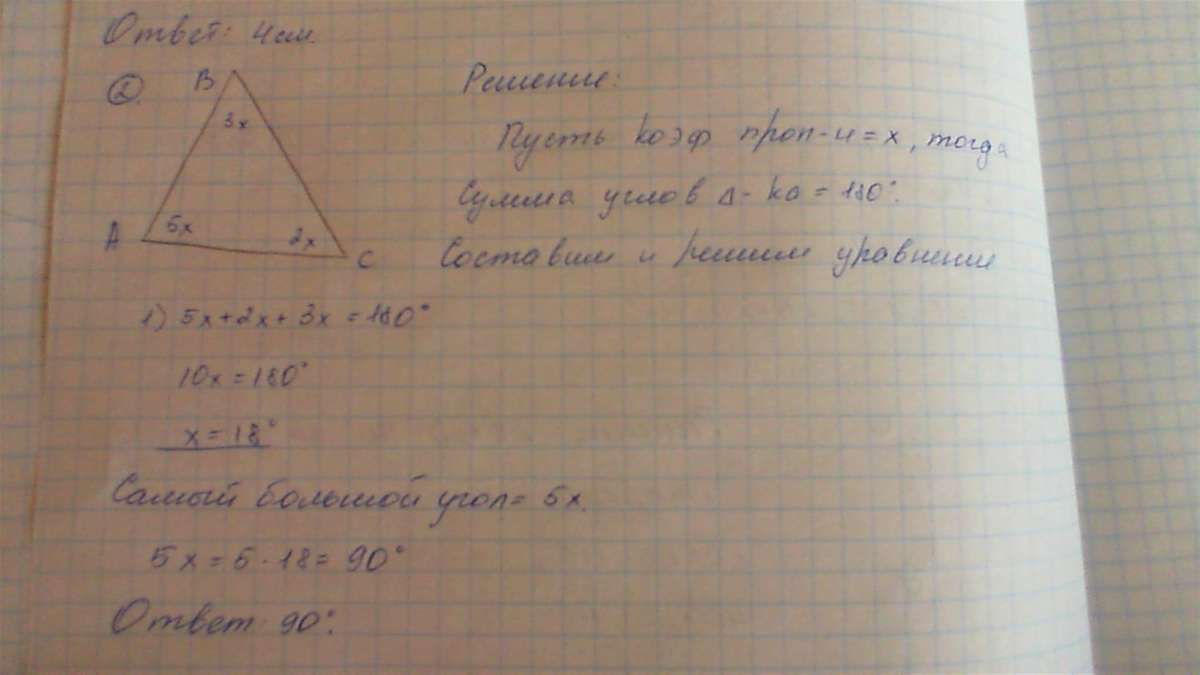 Ответ: 4см.
②.
B
3x
A
5x
2x
C
Решение:
Пусть коэф проп-и = x, тогда
Сумма углов Δ-ка = 180°.
Составим и решим уравнение
1) 5x+2x+3x = 180°
10x = 180°
x = 18°
Самый большой угол = 5x.
5x = 5 · 18 = 90°
Ответ: 90°.